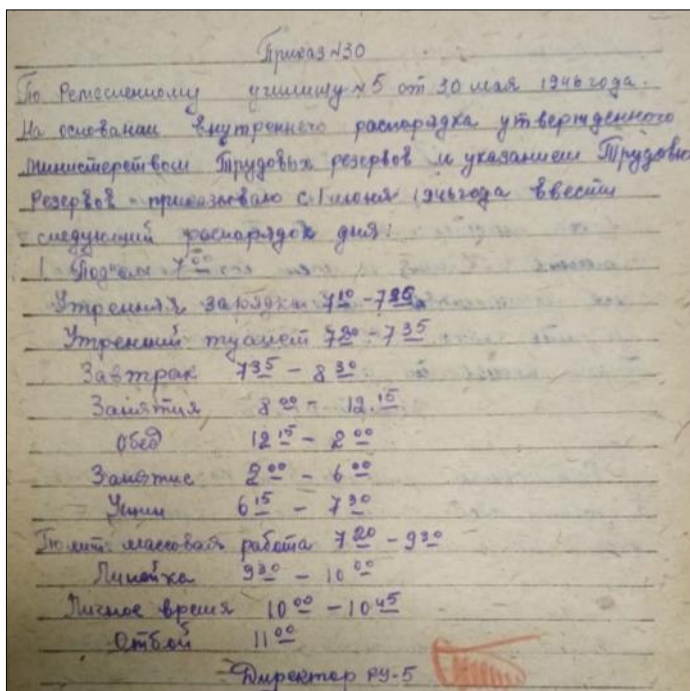 Приказ №30
По Ремесленному училищу №5 от 30 мая 1946 года.
На основании внутреннего распорядка утвержденного
министерством Трудовых резервов и указанием Трудовых
Резервов - приказываю с 1 июня 1946 года ввести
следующий распорядок дня:
1. Подъем 7 00
Утренняя зарядка 7 10 - 7 25
Утренний туалет 7 20 - 7 35
Завтрак 7 35 - 8 30
Занятия 8 00 - 12.15
Обед 12 15 - 2 00
Занятие 2 00 - 6 00
Ужин 6 15 - 7 30
Полит. массовая работа 7 20 - 9 30
Линейка 9 30 - 10 00
Личное время 10 00 - 10 45
Отбой 11 00
Директор РУ-5